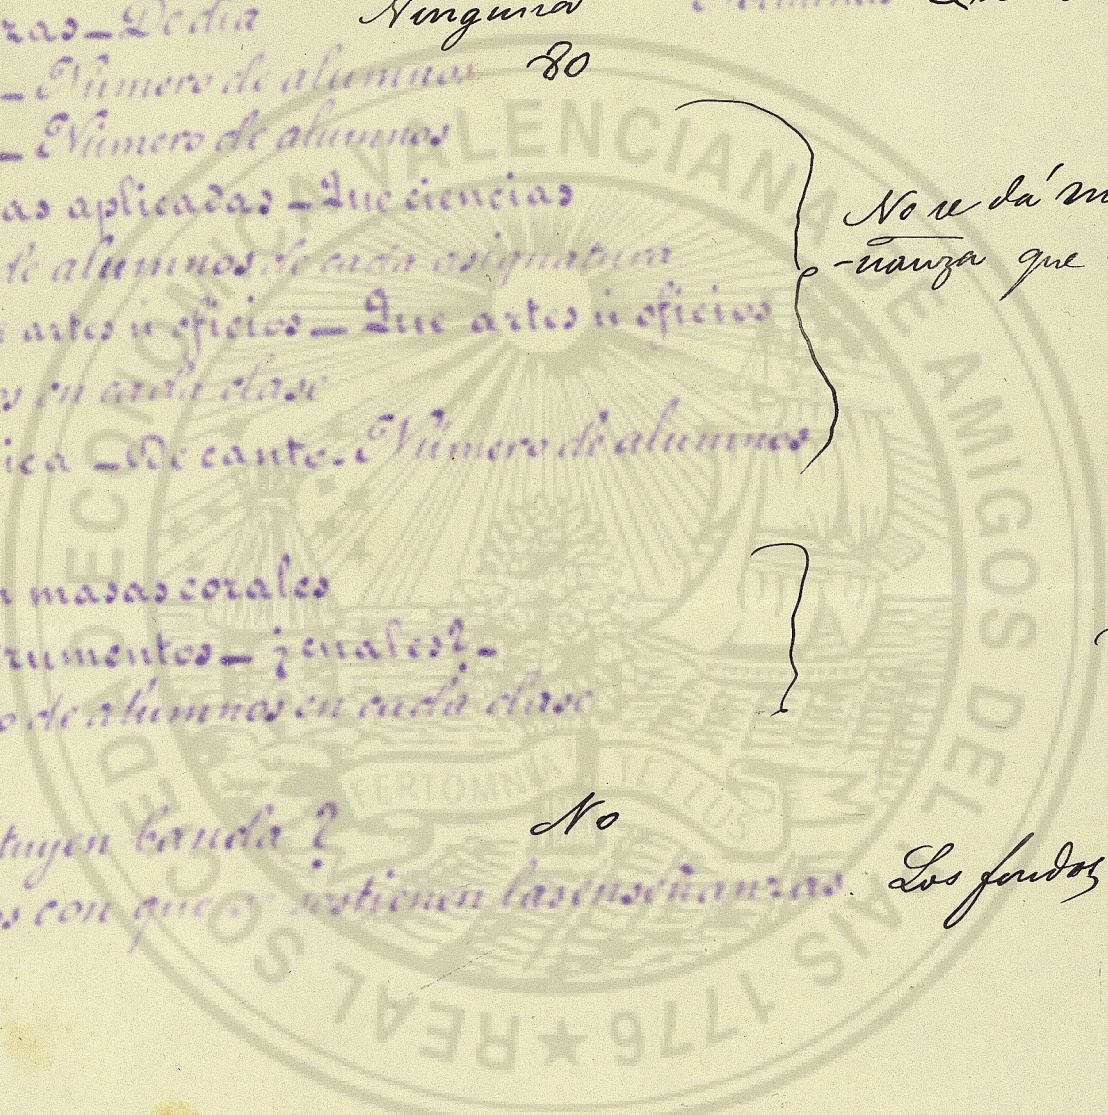 ras - De dia Ninguna
- Número de alumnos 80
- Número de alumnos
as aplicadas - Que ciencias
de alumnos de cada asignatura
No se dá
-nanza que
artes u oficios - Que artes u oficios
s en cada clase
ica - De canto. Número de alumnos
n masas corales
rumentos - ¿cuales? -
o de alumnos en cada clase
tuyen banda? No
s con que se sostienen las enseñanzas. Los fondos
REAL SOCIEDAD ECONOMICA VALENCIANA DE AMIGOS DEL PAIS 1776 ★
FERT OMNIA TELLUS